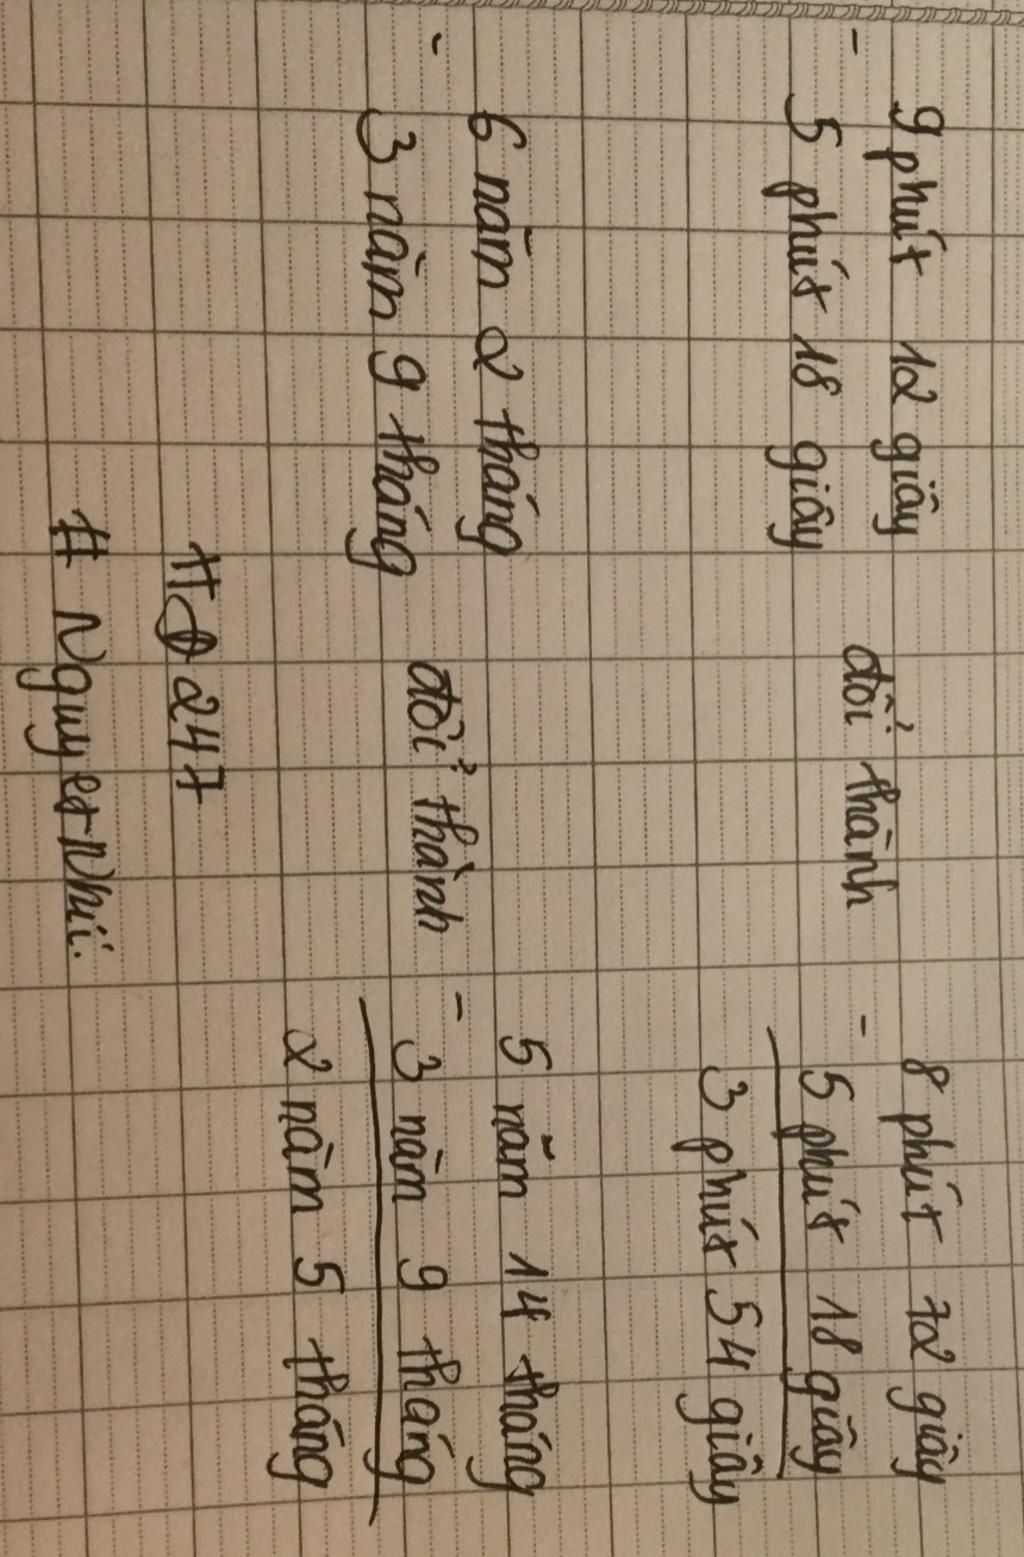 9 phút 12 giây
-
5 phút 18 giây
đổi thành
8 phút 72 giây
-
5 phút 18 giây
3 phút 54 giây
6 năm 2 tháng
-
3 năm 9 tháng
đổi thành
5 năm 14 tháng
-
3 năm 9 tháng
2 năm 5 tháng
247
# NguyetNhii.